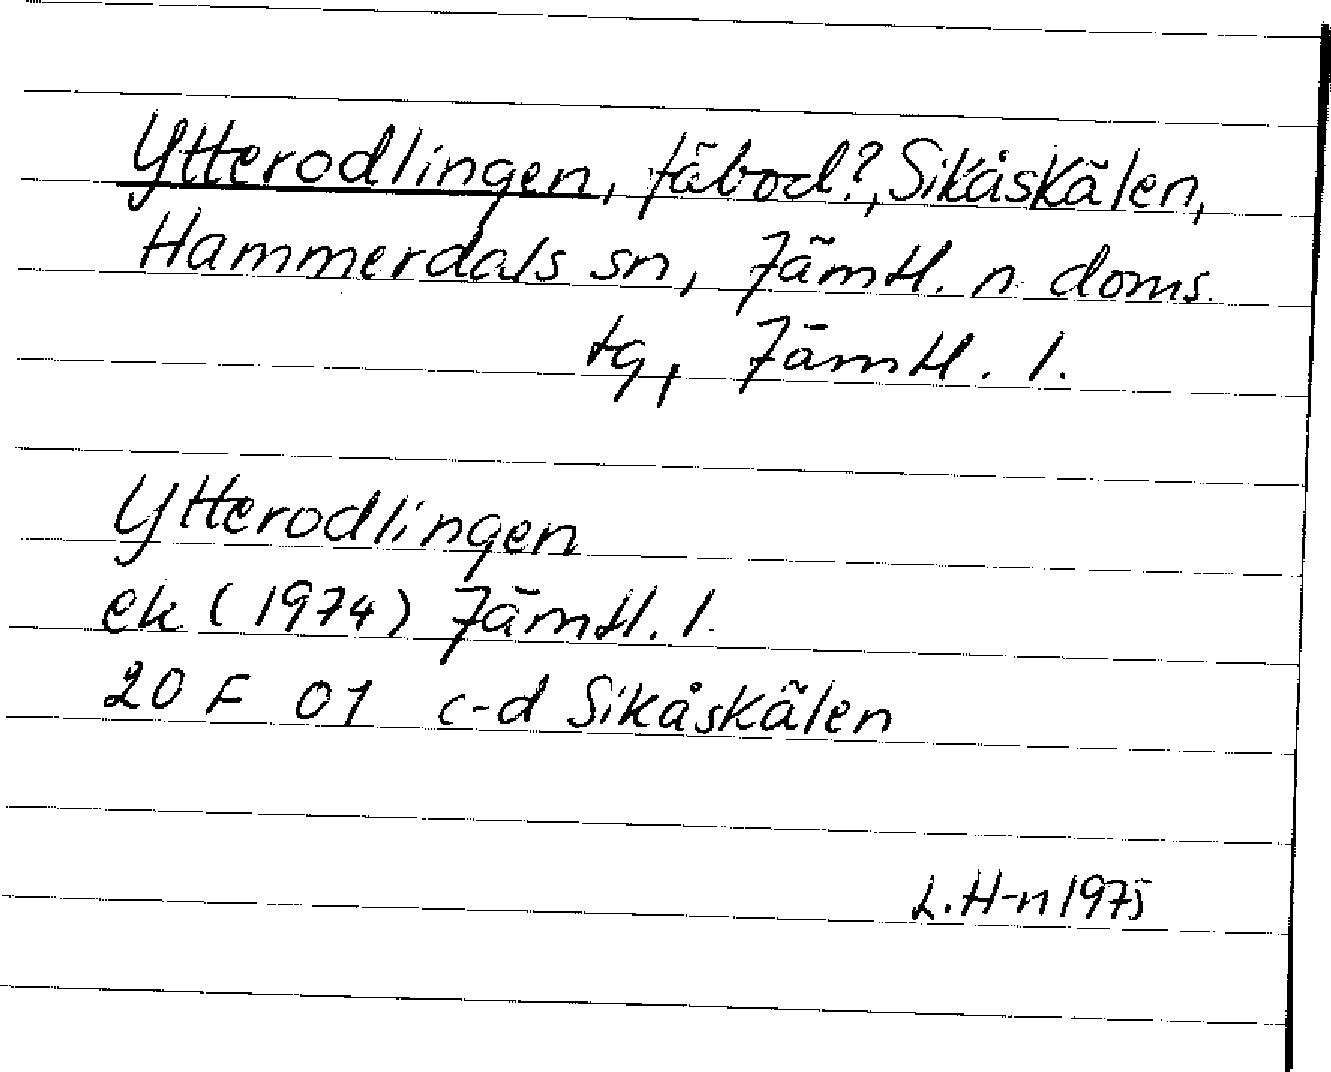 Ytterodlingen, fäbod?, Sikåskälen,
Hammerdals sn, Jämtl. n doms.
tg, Jämtl. l.
Ytterodlingen
ek (1974) Jämtl. l.
20 F 01 c-d Sikåskälen
L. H-n 1975